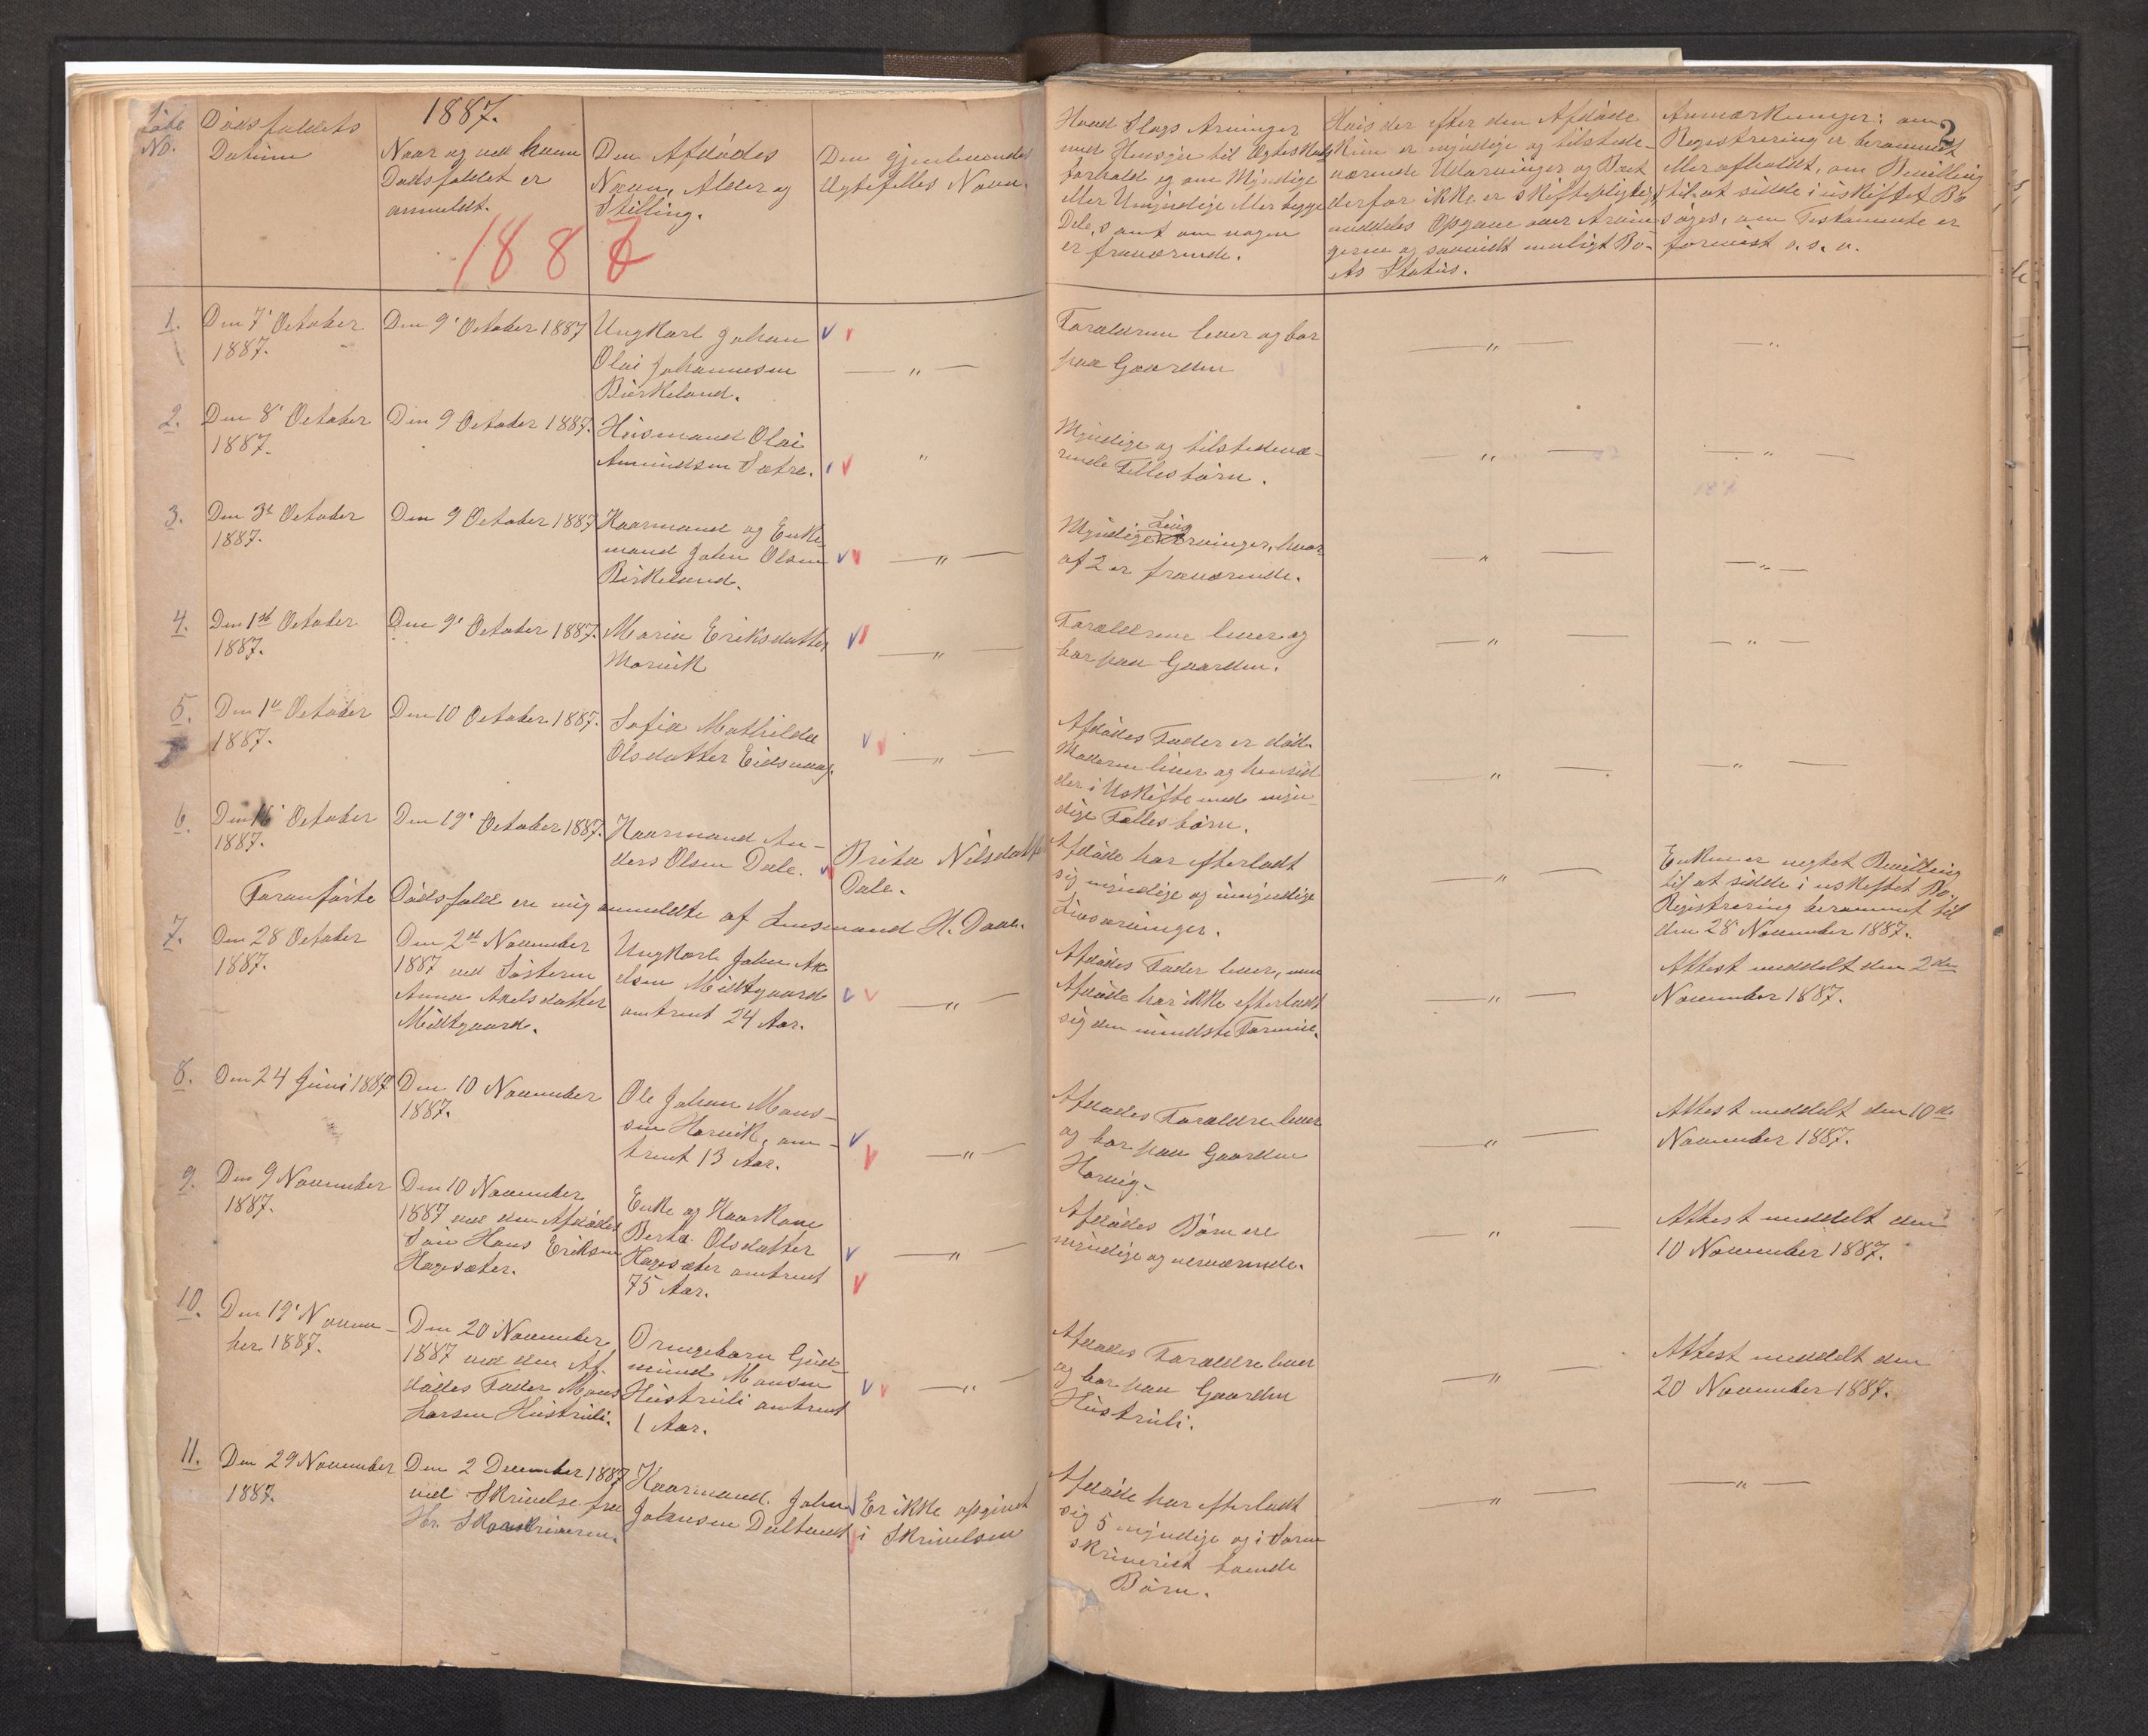 1887.
2
Löbe
No.
Dödsfaldets
Datum
Naar og ved hvem
Dödsfaldet er
anmeldt.
Den Afdödes
Navn, Alder og
Stilling.
Den gjenlevendes
Ægtefelles Navn.
Hvad Slags Arvinger
med Hensyn til Ægteskabs
forhold og om Myndige
eller Umyndige eller begge
Dele, samt om nogen
er fraværende.
Hvis der efter den Afdöde
kun er myndige og tilstede-
værende Udarvinger og Boet
derfor ikke er skiftepligtigt
meddeles Opgave over Arvin
gerne og saavidt muligt Bo-
ets Status.
Anmærkninger: om
Registrering er berammet
eller afholdt, om Bevilling
til at sidde i uskiftet Bo
söges, om Testamente er
forevist o. s. v.
1887
1.
Den 7' October
1887.
Den 9' October 1887
Ungkarl Johan
Olai Johannesen
Birkeland.
— " —
Forældrene lever og bor
paa Gaarden
— " —
— " —
2.
Den 8' October
1887.
Den 9 October 1887.
Husmand Olai
Amundsen Sætre.
"
Myndige og tilstedevæ-
rende Fellesbörn.
— " —
— " —
3.
Den 3d October
1887.
Den 9 October 1887
Kaarmand og Enke
mand John Olsen
Birkeland.
— " —
Livs
Myndige Arvinger, hvor
af 2 er fraværende.
— " —
— " —
4.
Den 1st October
1887.
Den 9' October 1887.
Maria Eriksdatter
Morvik
— " —
Forældrene lever og
bor paa Gaarden.
— " —
— " —
5.
Den 1st October
1887.
Den 10 October 1887.
Sofia Mathilde
Olsdatter Eidsvaag.
— " —
Afdödes Fader er död.
Moderen lever og hensid
der i Uskifte med myn
dige Fellesbörn.
— " —
— " —
6.
Den 16' October
1887.
Den 19' October 1887.
Kaarmand An-
ders Olsen Dale.
Brita Nilsdatter
Dale.
Afdöde har efterladt
sig myndige og umyndige
Livsarvinger.
— " —
Enken er negtet Bevilling
til at sidde i uskiftet Bo,
Registrering berammet til
den 28' November 1887.
Foranförte Dödsfald ere mig anmeldte af Lensmand H. Daae.
7.
Den 28 October
1887.
Den 2d November
1887 ved Sösteren
Anna Akelsdatter
Midtgaard.
Ungkarl John Ak
elsen Midtgaard
omtrent 24 Aar.
— " —
Afdödes Fader lever, men
Afdöde har ikke efterladt
sig den mindste Formue.
— " —
Attest meddelt den 2den
November 1887.
8.
Den 24 Juni 1887
Den 10 November
1887.
Ole Johan Mons-
sen Horvik, om-
trent 13 Aar.
— " —
Afdödes Forældre lever
og bor paa Gaarden
Horvig.
— " —
Attest meddelt den 10de
November 1887.
9.
Den 9 November
1887.
Den 10 November
1887 ved den Afdödes
Sön Hans Eriksen
Hagesæter.
Enke og Kaarkone
Berta Olsdatter
Hagesæter omtrent
75 Aar.
— " —
Afdödes Börn ere
myndige og nærværende.
— " —
Attest meddelt den
10 November 1887.
10.
Den 19' Novem-
ber 1887.
Den 20 November
1887 ved den Af
dödes Fader Mons
Larsen Hustruli.
Drengebarn Gud-
mund Monsen
Hustruli omtrent
1 Aar.
— " —
Afdödes Forældre lever
og bor paa Gaarden
Hustruli.
— " —
Attest meddelt den
20 November 1887.
11.
Den 29 November
1887.
Den 2 December 1887
ved Skrivelse fra
Hr. Sorenskriveren.
Kaarmand John
Johnsen Dalland
Er ikke opgivet
i Skrivelsen
Afdöde har efterladt
sig 5 myndige og i Soren
skriveriet boende
Börn.
— " —
— " —